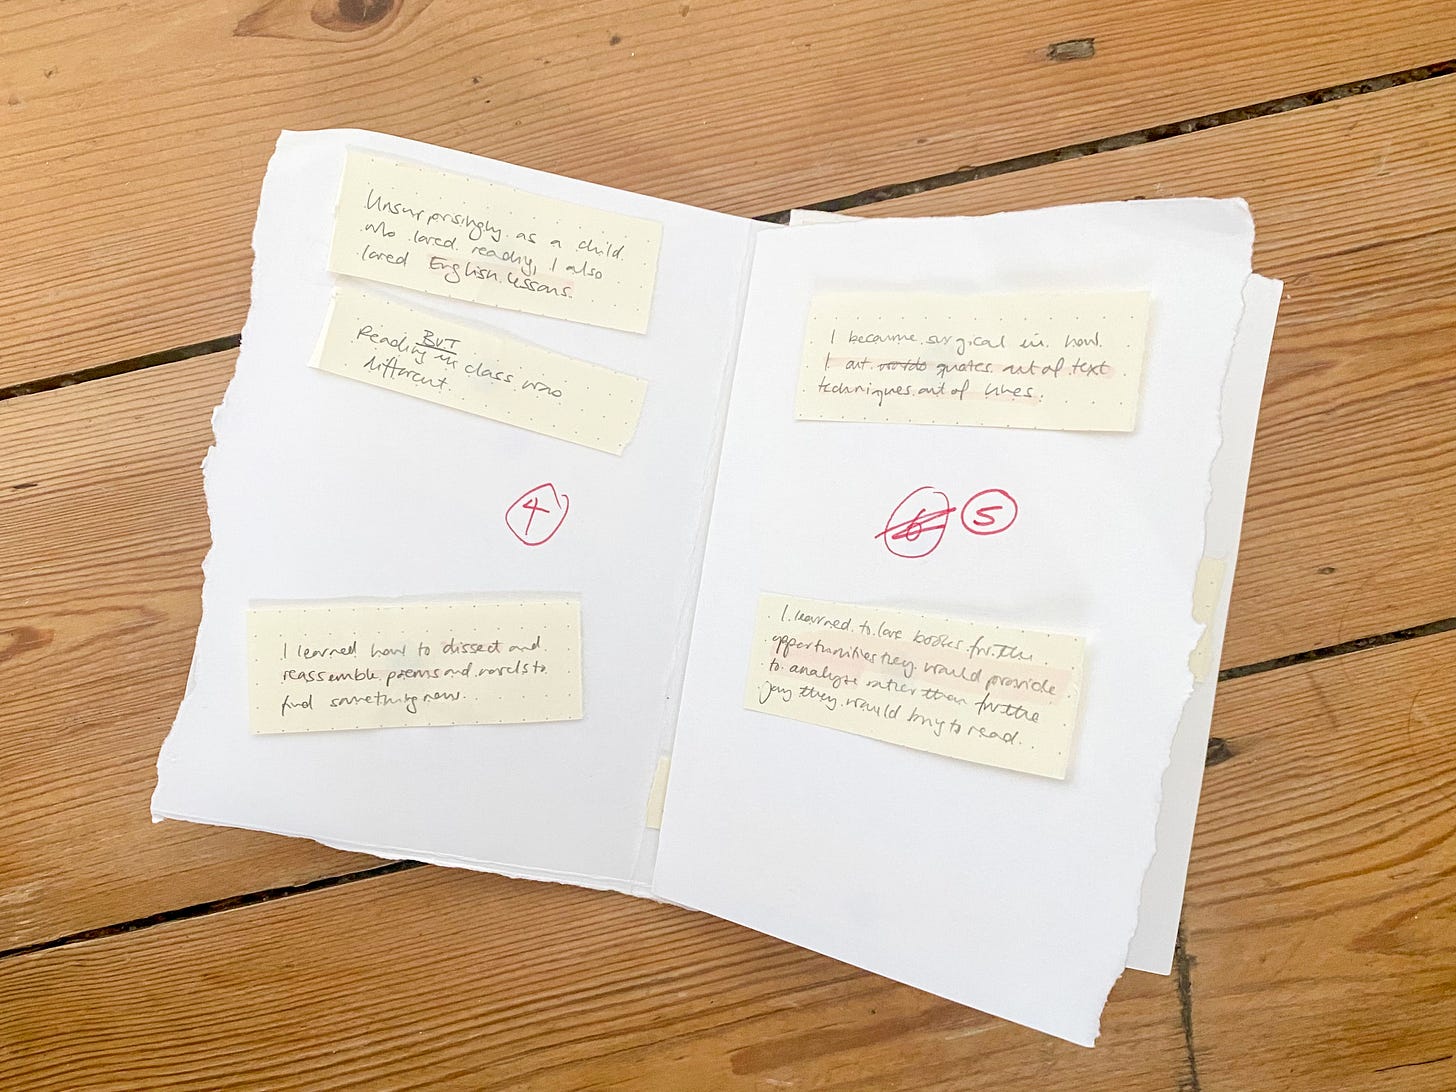 Unsurprisingly as a child
who loved reading, I also
loved English lessons.
BUT
Reading in class was
different.
4
I learned how to dissect and
reassemble poems and novels to
find something new.
I became surgical in how
I cut words quotes out of text
techniques out of lines.
6 5
I learned to love books for the
opportunities they would provide
to analyze rather than for the
joy they would bring to read.